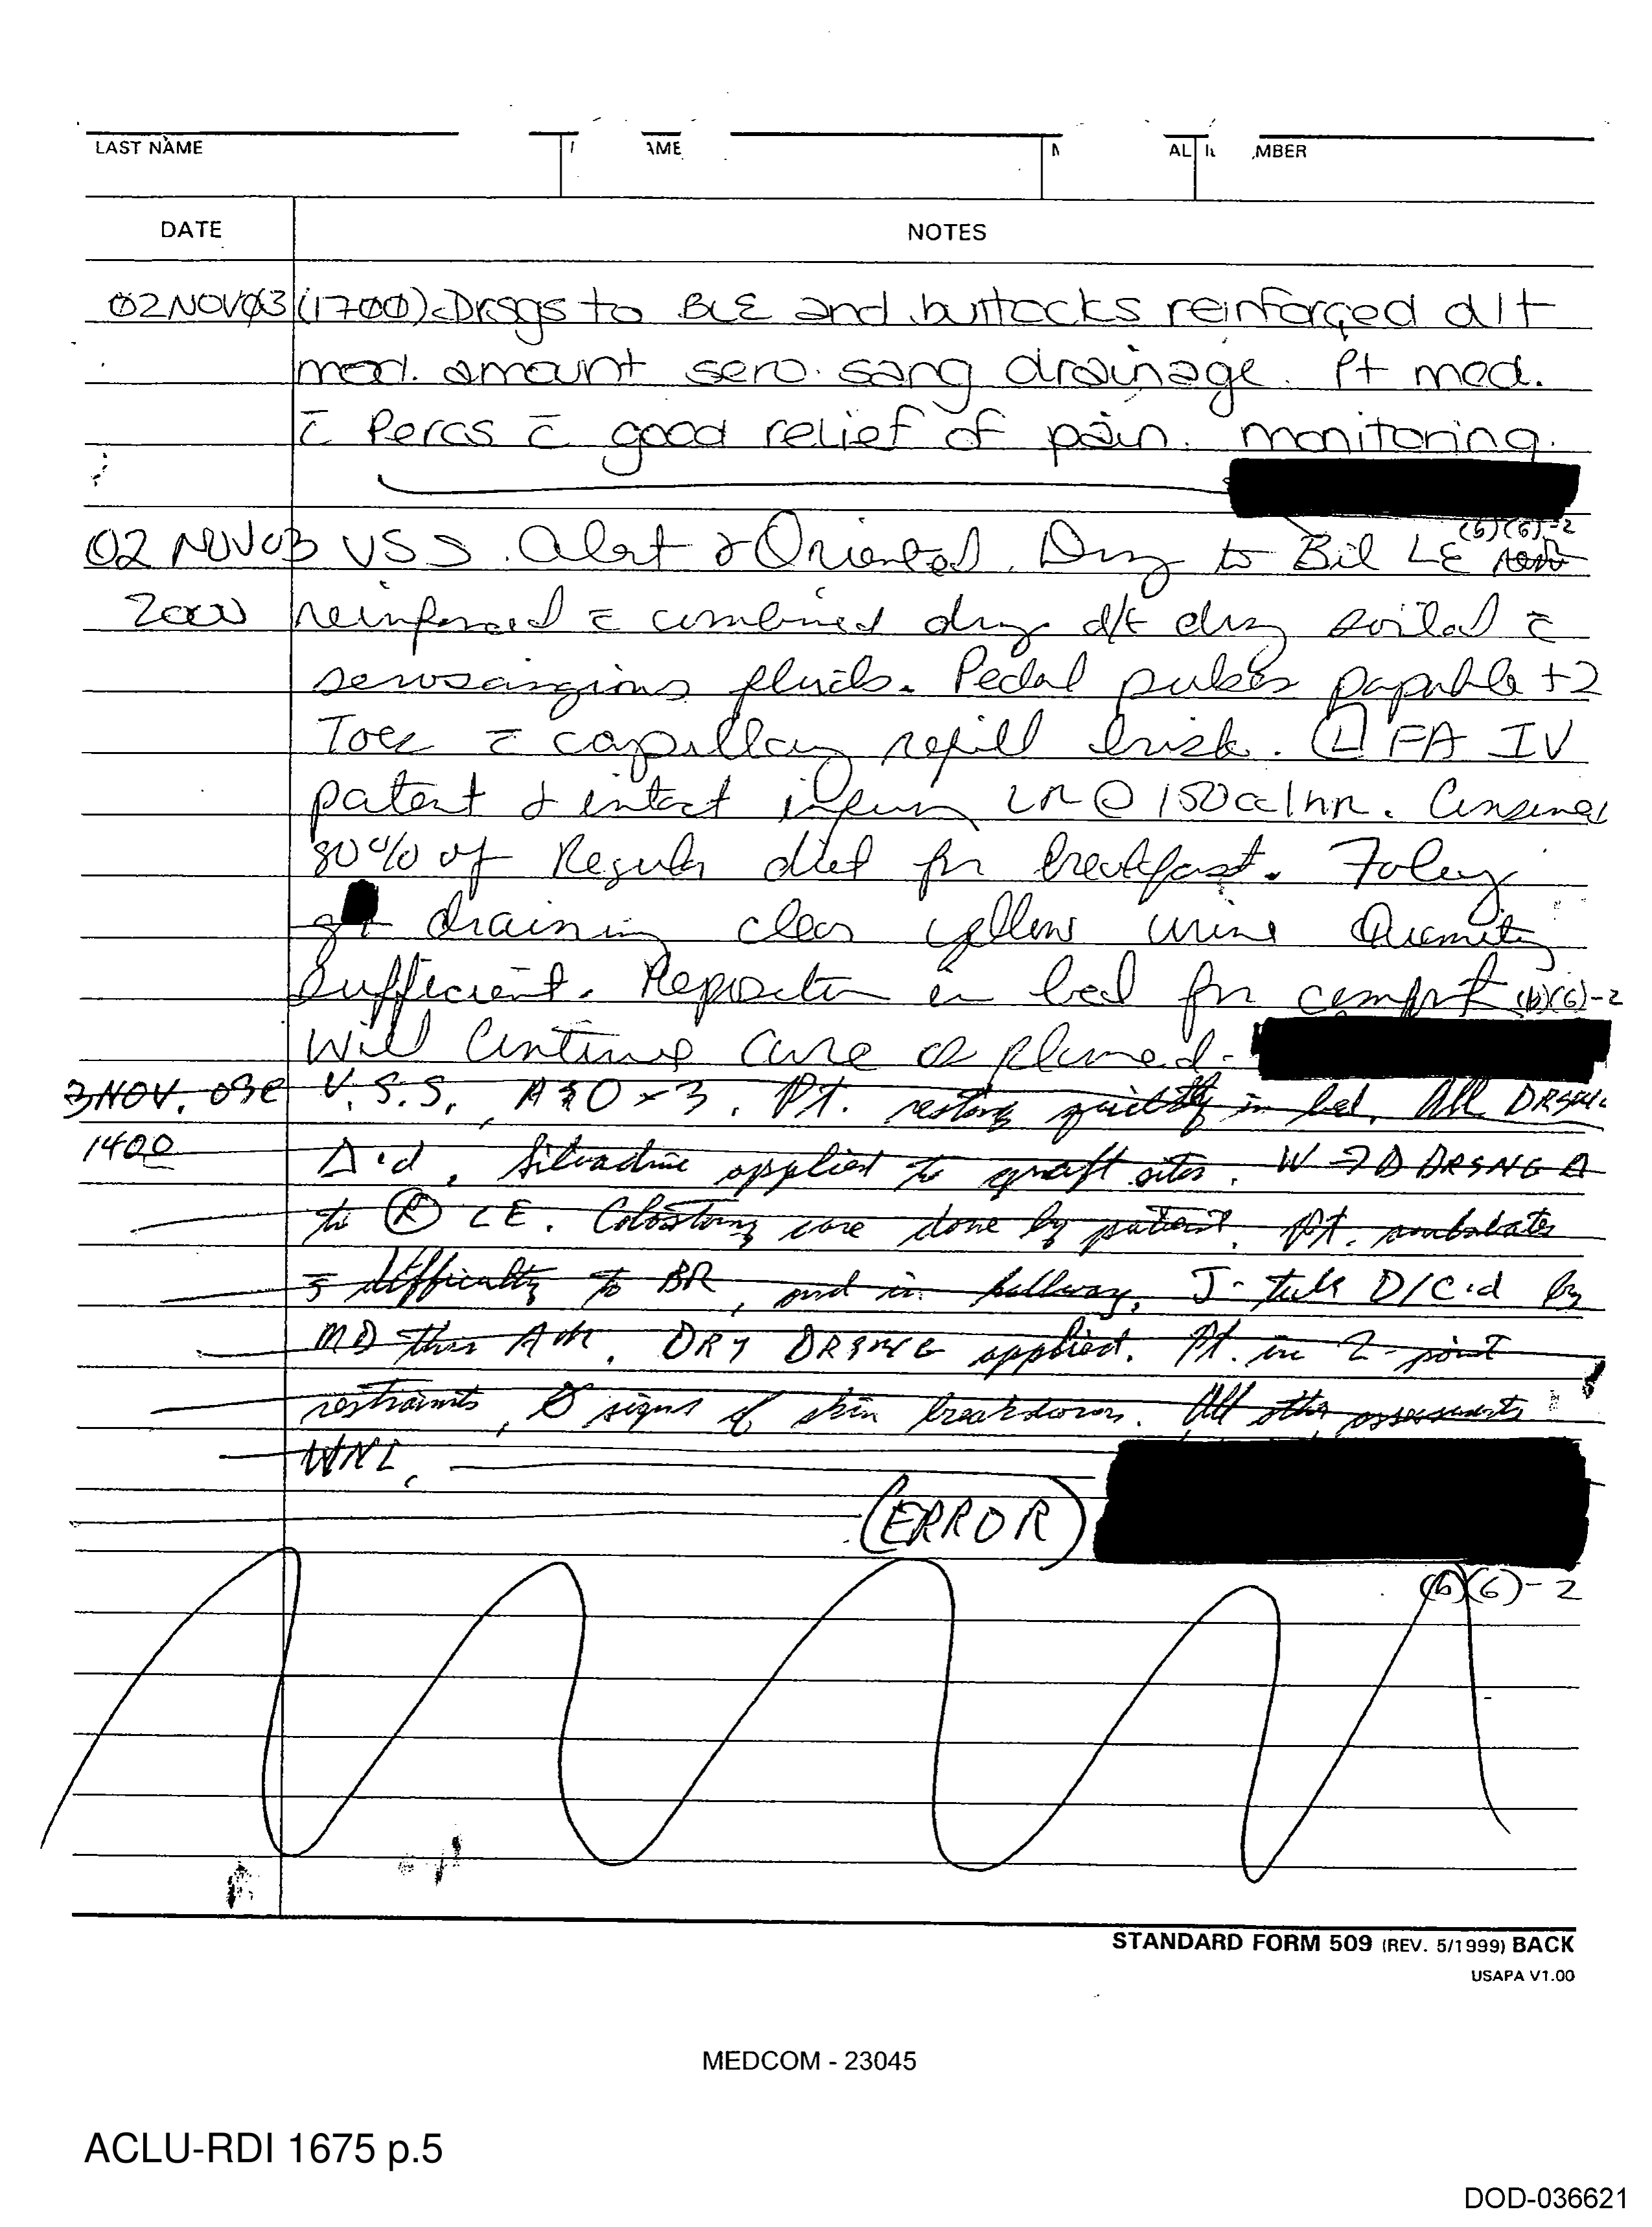 LAST NAME AME AL MBER
DATE NOTES
02NOV03 (1700) Drsgs to BLE and buttocks reinforced d/t
mod. amount sero. sang drainage. Pt med.
c̄ Percs c̄ good relief of pain. monitoring.
(b)(6)-2
02 NOV03 VSS. Alert & Oriented. Drsg to Bil LE
2000 reinforced c̄ combined drsg d/t drsg soiled c̄
serosangious fluids. Pedal pulses papable +2
Toes c̄ capillary refill brisk. Ⓛ FA IV
patent & intact infusing LR @ 150cc/hr. Consumed
80% of Regular diet for breakfast. Foley
draining clear yellow urine Quanity
Sufficient. Reposition in bed for comfort (b)(6)-2
Will continue care as planned-
3NOV. 03 V.S.S., A&O x 3. Pt. resting quietly in bed. All DRSNG
1400 Δ'd. Silvadine applied to graft sites. W→D DRSNG Δ
to Ⓡ LE. Colostomy care done by patient. Pt. ambulates
s̄ difficulty to BR, and in hallway. J-tube D/C'd by
MD this AM. DRY DRSNG applied. Pt. in 2-point
restraints, Ø signs of skin breakdown. All other assessments
WNL.
(ERROR)
(b)(6)-2
STANDARD FORM 509 (REV. 5/1999) BACK
USAPA V1.00
MEDCOM - 23045
ACLU-RDI 1675 p.5
DOD-036621